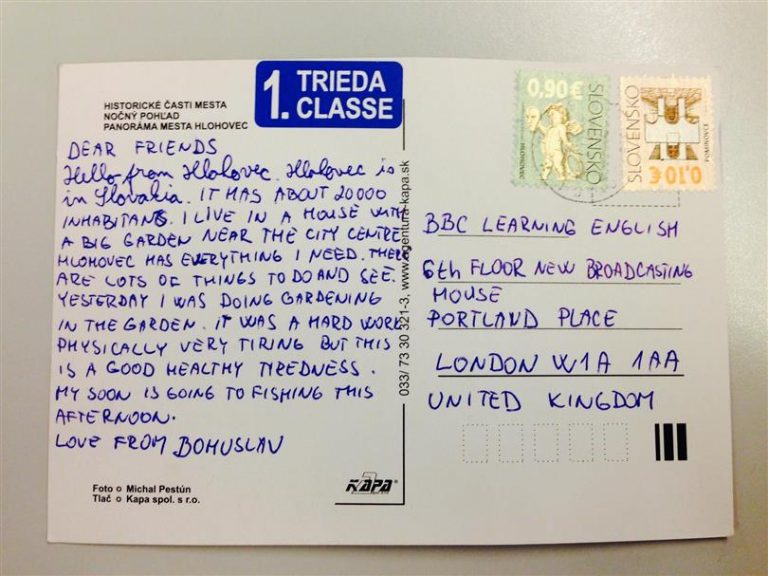 HISTORICKÉ ČASTI MESTA
NOČNÝ POHĽAD
PANORÁMA MESTA HLOHOVEC
1. TRIEDA
CLASSE
DEAR FRIENDS
Hello from Hlohovec. Hlohovec is
in Slovakia. IT HAS ABOUT 20000
INHABITANS. I LIVE IN A HOUSE WITH
A BIG GARDEN NEAR THE CITY CENTRE
HLOHOVEC HAS EVERYTHING I NEED. THERE
ARE LOTS OF THINGS TO DO AND SEE.
YESTERDAY I WAS DOING GARDENING
IN THE GARDEN. IT WAS A HARD WORK
PHYSICALLY VERY TIRING BUT THIS
IS A GOOD HEALTHY TIREDNESS.
MY SOON IS GOING TO FISHING THIS
AFTERNOON.
LOVE FROM BOHUSLAV
Foto Michal Pestún
Tlač Kapa spol. s r.o.
033/ 73 30 321-3, www.agentura-kapa.sk
KAPA
0,90€
SLOVENSKO
HLOHOVEC
SLOVENSKO
0,10€
POMINOVCE
BBC LEARNING ENGLISH
6th FLOOR NEW BROADCASTING
HOUSE
PORTLAND PLACE
LONDON W1A 1AA
UNITED KINGDOM